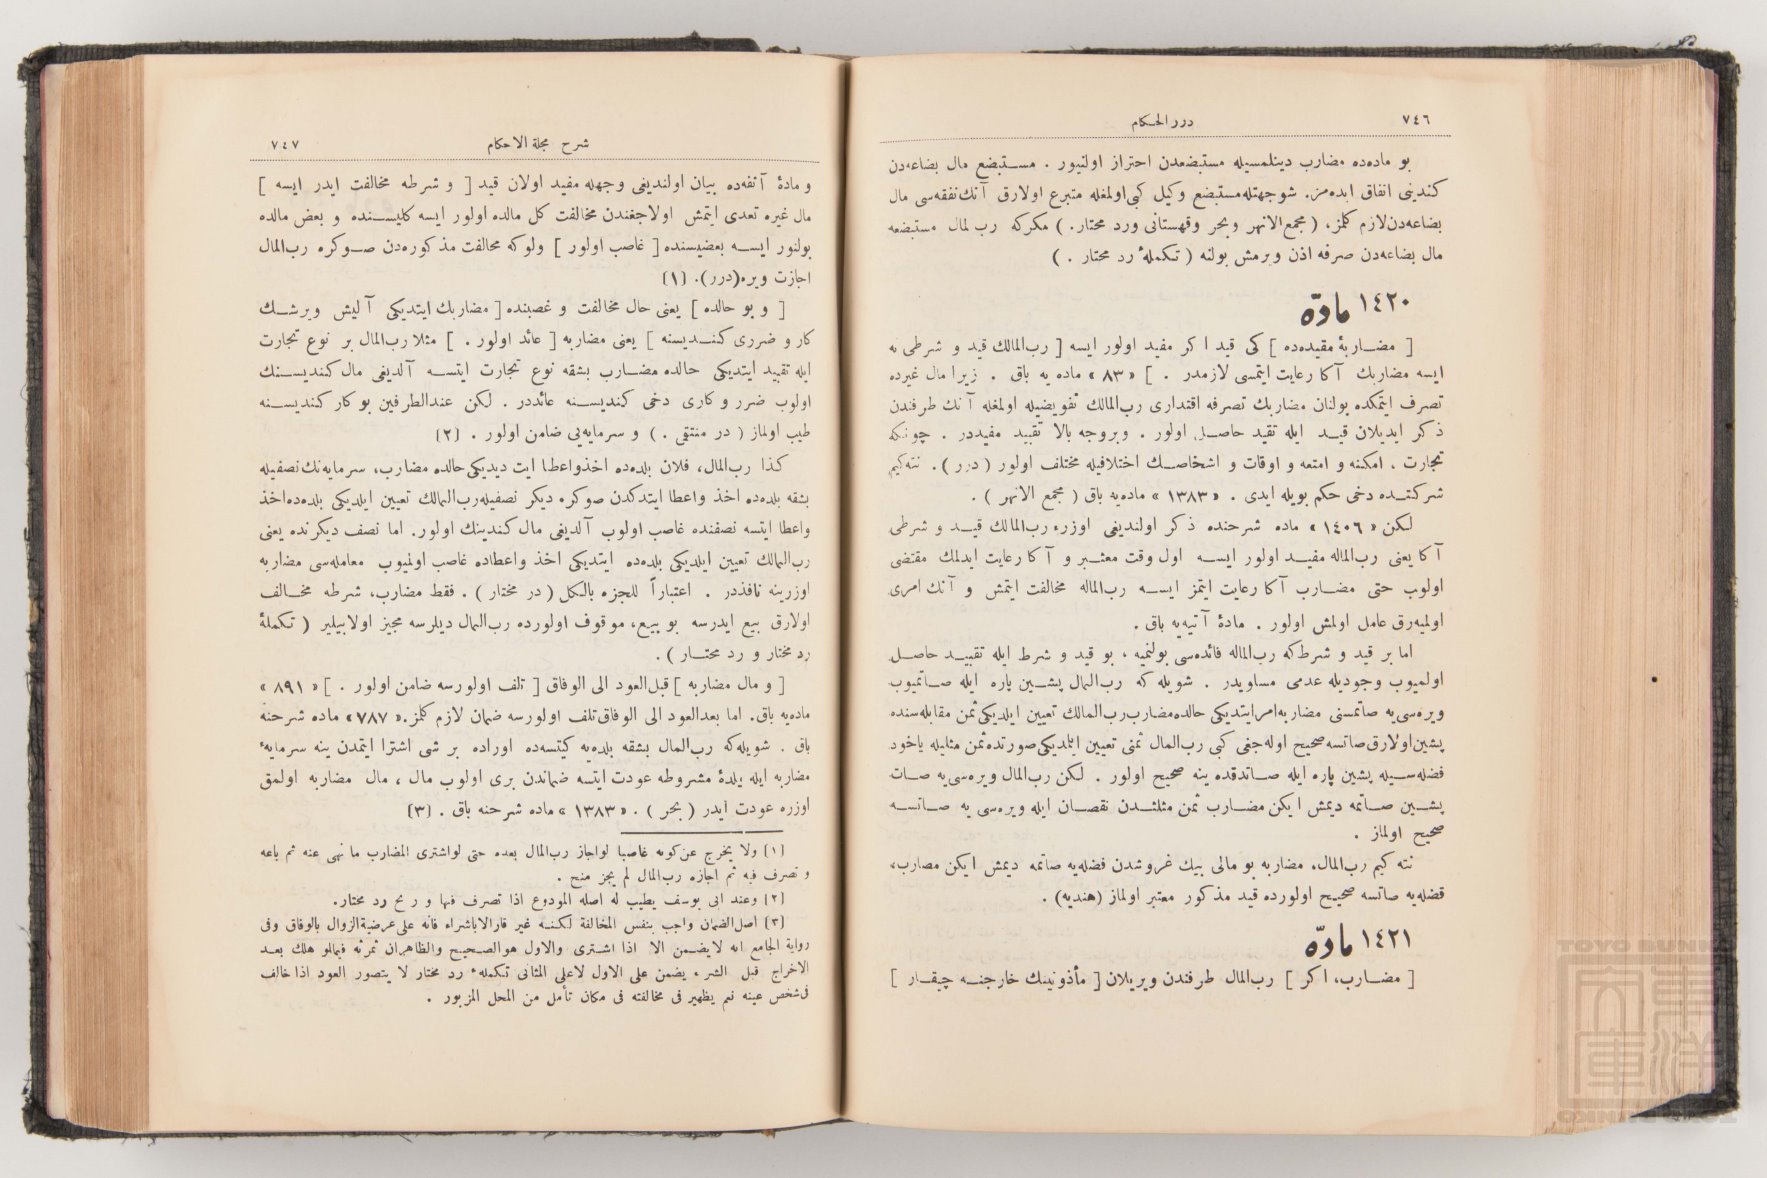 ٧٤٦
درر الحكام
بو ماده‌ده مضارب دينلمسيله مستبضعدن احتراز اولنيور . مستبضع مال بضاعه‌دن
كندينى انفاق ايده‌مز. شوجهتله‌مستبضع وكيل كبى‌اولمغله متبرع اولارق آنك‌نفقه‌سى مال
بضاعه‌دن‌لازم كلمز، ( مجمع‌الانهر وبحر وقهستانى ورد محتار. ) مكركه رب‌المال مستبضعه
مال بضاعه‌دن صرفه اذن ويرمش بولنه ( تكملهٔ رد محتار . )
١٤٢٠ مادّه
[ مضاربهٔ مقيده‌ده ] كى قيد اكر مفيد اولور ايسه [ رب‌المالك قيد و شرطى نه
ايسه مضاربك آكا رعايت ايتمسى لازمدر . ] « ٨٣ » ماده يه باق . زيرا مال غيرده
تصرف ايتمكده بولنان مضاربك تصرفه اقتدارى رب‌المالك تفويضيله اولمغله آنك طرفندن
ذكر ايديلان قيد ايله تقيد حاصل اولور . وبروجه بالا تقييد مفيددر . چونكه
تجارت ، امكنه و امتعه و اوقات و اشخاصك اختلافيله مختلف اولور ( درر ) . نته‌كيم
شركتده دخى حكم بويله ايدى . « ١٣٨٣ » ماده‌يه باق ( مجمع الانهر ) .
لكن « ١٤٠٦ » ماده شرحنده ذكر اولنديغى اوزره رب‌المالك قيد و شرطى
آكا يعنى رب‌الماله مفيد اولور ايسه اول وقت معتبر و آكا رعايت ايدلمك مقتضى
اولوب حتى مضارب آكا رعايت ايتمز ايسه رب‌الماله مخالفت ايتمش و آنك امرى
اولميه‌رق عامل اولمش اولور . مادهٔ آتيه‌يه باق .
اما بر قيد و شرط‌كه رب‌الماله فائده‌سى بولنميه ، بو قيد و شرط ايله تقييد حاصل
اولميوب وجوديله عدمى مساويدر . شويله كه رب‌المال پشين پاره ايله صاتميوب
ويره‌سى‌يه صاتمسنى مضاربه‌امرايتديكى حالده‌مضارب‌رب‌المالك تعيين ايلديكى‌ثمن مقابله‌سنده
پشين‌اولارق‌صاتسه‌صحيح اوله‌جغى كبى رب‌المال ثمنى تعيين ايلديكى‌صورتده‌ثمن مثليله ياخود
فضله‌سيله پشين پاره ايله صاتدقده ينه صحيح اولور . لكن رب‌المال ويره‌سى‌يه صات
پشين صاتمه ديمش ايكن مضارب ثمن مثلندن نقصان ايله ويره‌سى يه صاتسه
صحيح اولماز .
نته كيم رب‌المال، مضاربه بو مالى بيك غروشدن فضله‌يه صاتمه ديمش ايكن مضارب،
فضله‌يه صاتسه صحيح اولورده قيد مذكور معتبر اولماز (هنديه) .
١٤٢١ مادّه
[ مضارب، اكر ] رب‌المال طرفندن ويريلان [ مأذونيتك خارجنه چيقار ]
٧٤٧
شرح مجلة الاحكام
و مادهٔ آنفه‌ده بيان اولنديغى وجهله مفيد اولان قيد [ و شرطه مخالفت ايدر ايسه ]
مال غيره تعدى ايتمش اولاجغندن مخالفت كل مالده اولور ايسه كليسنده و بعض مالده
بولنور ايسه بعضيسنده [ غاصب اولور ] ولوكه مخالفت مذكوره‌دن صوكره رب‌المال
اجازت ويره(درر). [١]
[ و بو حالده ] يعنى حال مخالفت و غصبنده [ مضاربك ايتديكى آليش ويرشك
كار و ضررى كنديسنه ] يعنى مضاربه [ عائد اولور . ] مثلا رب‌المال بر نوع تجارت
ايله تقييد ايتديكى حالده مضارب بشقه نوع تجارت ايتسه آلديغى مال كنديسنك
اولوب ضرر و كارى دخى كنديسنه عائددر . لكن عندالطرفين بو كار كنديسنه
طيب اولماز ( در منتقى . ) و سرمايه‌يى ضامن اولور . [٢]
كذا رب‌المال، فلان بلده‌ده اخذواعطا ايت ديديكى‌حالده مضارب، سرمايه‌نك‌نصفيله
بشقه بلده‌ده اخذ واعطا ايتدكدن صوكره ديكر نصفيله‌رب‌المالك تعيين ايلديكى بلده‌ده‌اخذ
واعطا ايتسه نصفنده غاصب اولوب آلديغى مال كندينك اولور. اما نصف ديكرنده يعنى
رب‌المالك تعيين ايلديكى بلده‌ده ايتديكى اخذ واعطاده غاصب اولميوب معامله‌سى مضاربه
اوزرينه نافذدر . اعتباراً للجزء بالكل ( در مختار ) . فقط مضارب، شرطه مخالف
اولارق بيع ايدرسه بو بيع، موقوف اولورده رب‌المال ديلرسه مجيز اولابيلير ( تكملهٔ
رد مختار و رد محتار ) .
[ و مال مضاربه ] قبل‌العود الى الوفاق [ تلف اولورسه ضامن اولور . ] « ٨٩١ »
ماده‌يه باق. اما بعدالعود الى الوفاق‌تلف اولورسه ضمان لازم كلمز.« ٧٨٧» ماده شرحنه
باق . شويله‌كه رب‌المال بشقه بلده‌يه كيتسه‌ده اوراده بر شى اشترا ايتمدن ينه سرمايهٔ
مضاربه ايله بلدهٔ مشروطه عودت ايتسه ضماندن برى اولوب مال ، مال مضاربه اولمق
اوزره عودت ايدر ( بحر ) . « ١٣٨٣ » ماده شرحنه باق . [٣]
[١] ولا يخرج عن‌كونه غاصبا لواجاز رب‌المال بعده حتى لواشترى المضارب ما نهى عنه ثم باعه
و تصرف فيه ثم اجازه رب‌المال لم يجز منح .
[٢] وعند ابى يوسف يطيب له اصله المودوع اذا تصرف فيها و ربح رد محتار.
[٣] اصل‌الضمان واجب بنفس المخالفة لكنه غير قارالاباشراء فانه على‌عرضيةالزوال بالوفاق وفى
رواية الجامع انه لايضمن الا اذا اشترى والاول هوالصحيح والظاهران ثمرته فيمالو هلك بعد
الاخراج قبل الشراء يضمن على الاول لاعلى الثانى تكملهٔ رد مختار لا يتصور العود اذا خالف
فى‌شخص عينه نعم يظهير فى مخالفته فى مكان تأمل من المحل المزبور .
TOYO BUNKO